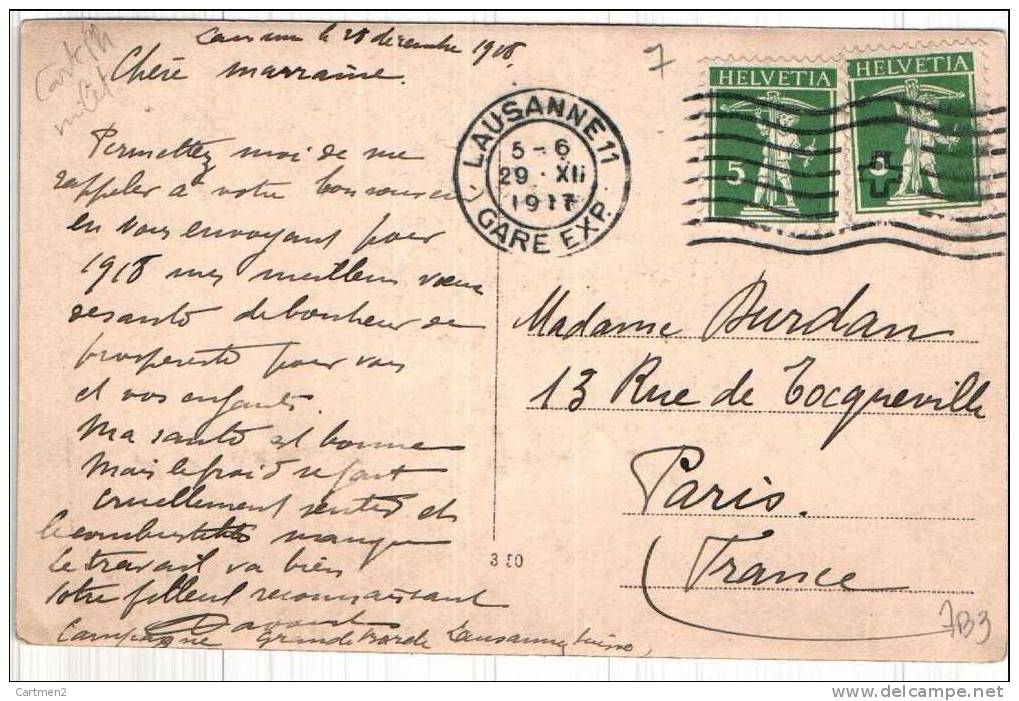 Lausanne le 28 décembre 1918
Chère marraine.
7
HELVETIA
5
HELVETIA
5
LAUSANNE 11
5-6
29 · XII
1917
GARE EXP.
Permettez moi de me
rappeler a votre bon
en vous envoyant pour
1918 mes meilleurs vœux
de santé de bonheur de
prosperité pour vous
et vos enfants.
Ma santé est bonne
Mais le froid se fait
cruellement sentir et
le combustible manque
Le travail va bien
Votre filleul reconnaissant
Campagne Lausanne Suisse
Madame Burdan
13 Rue de Tocqueville
Paris.
France
3 50
7B3
Cartmen2
delcampe.net